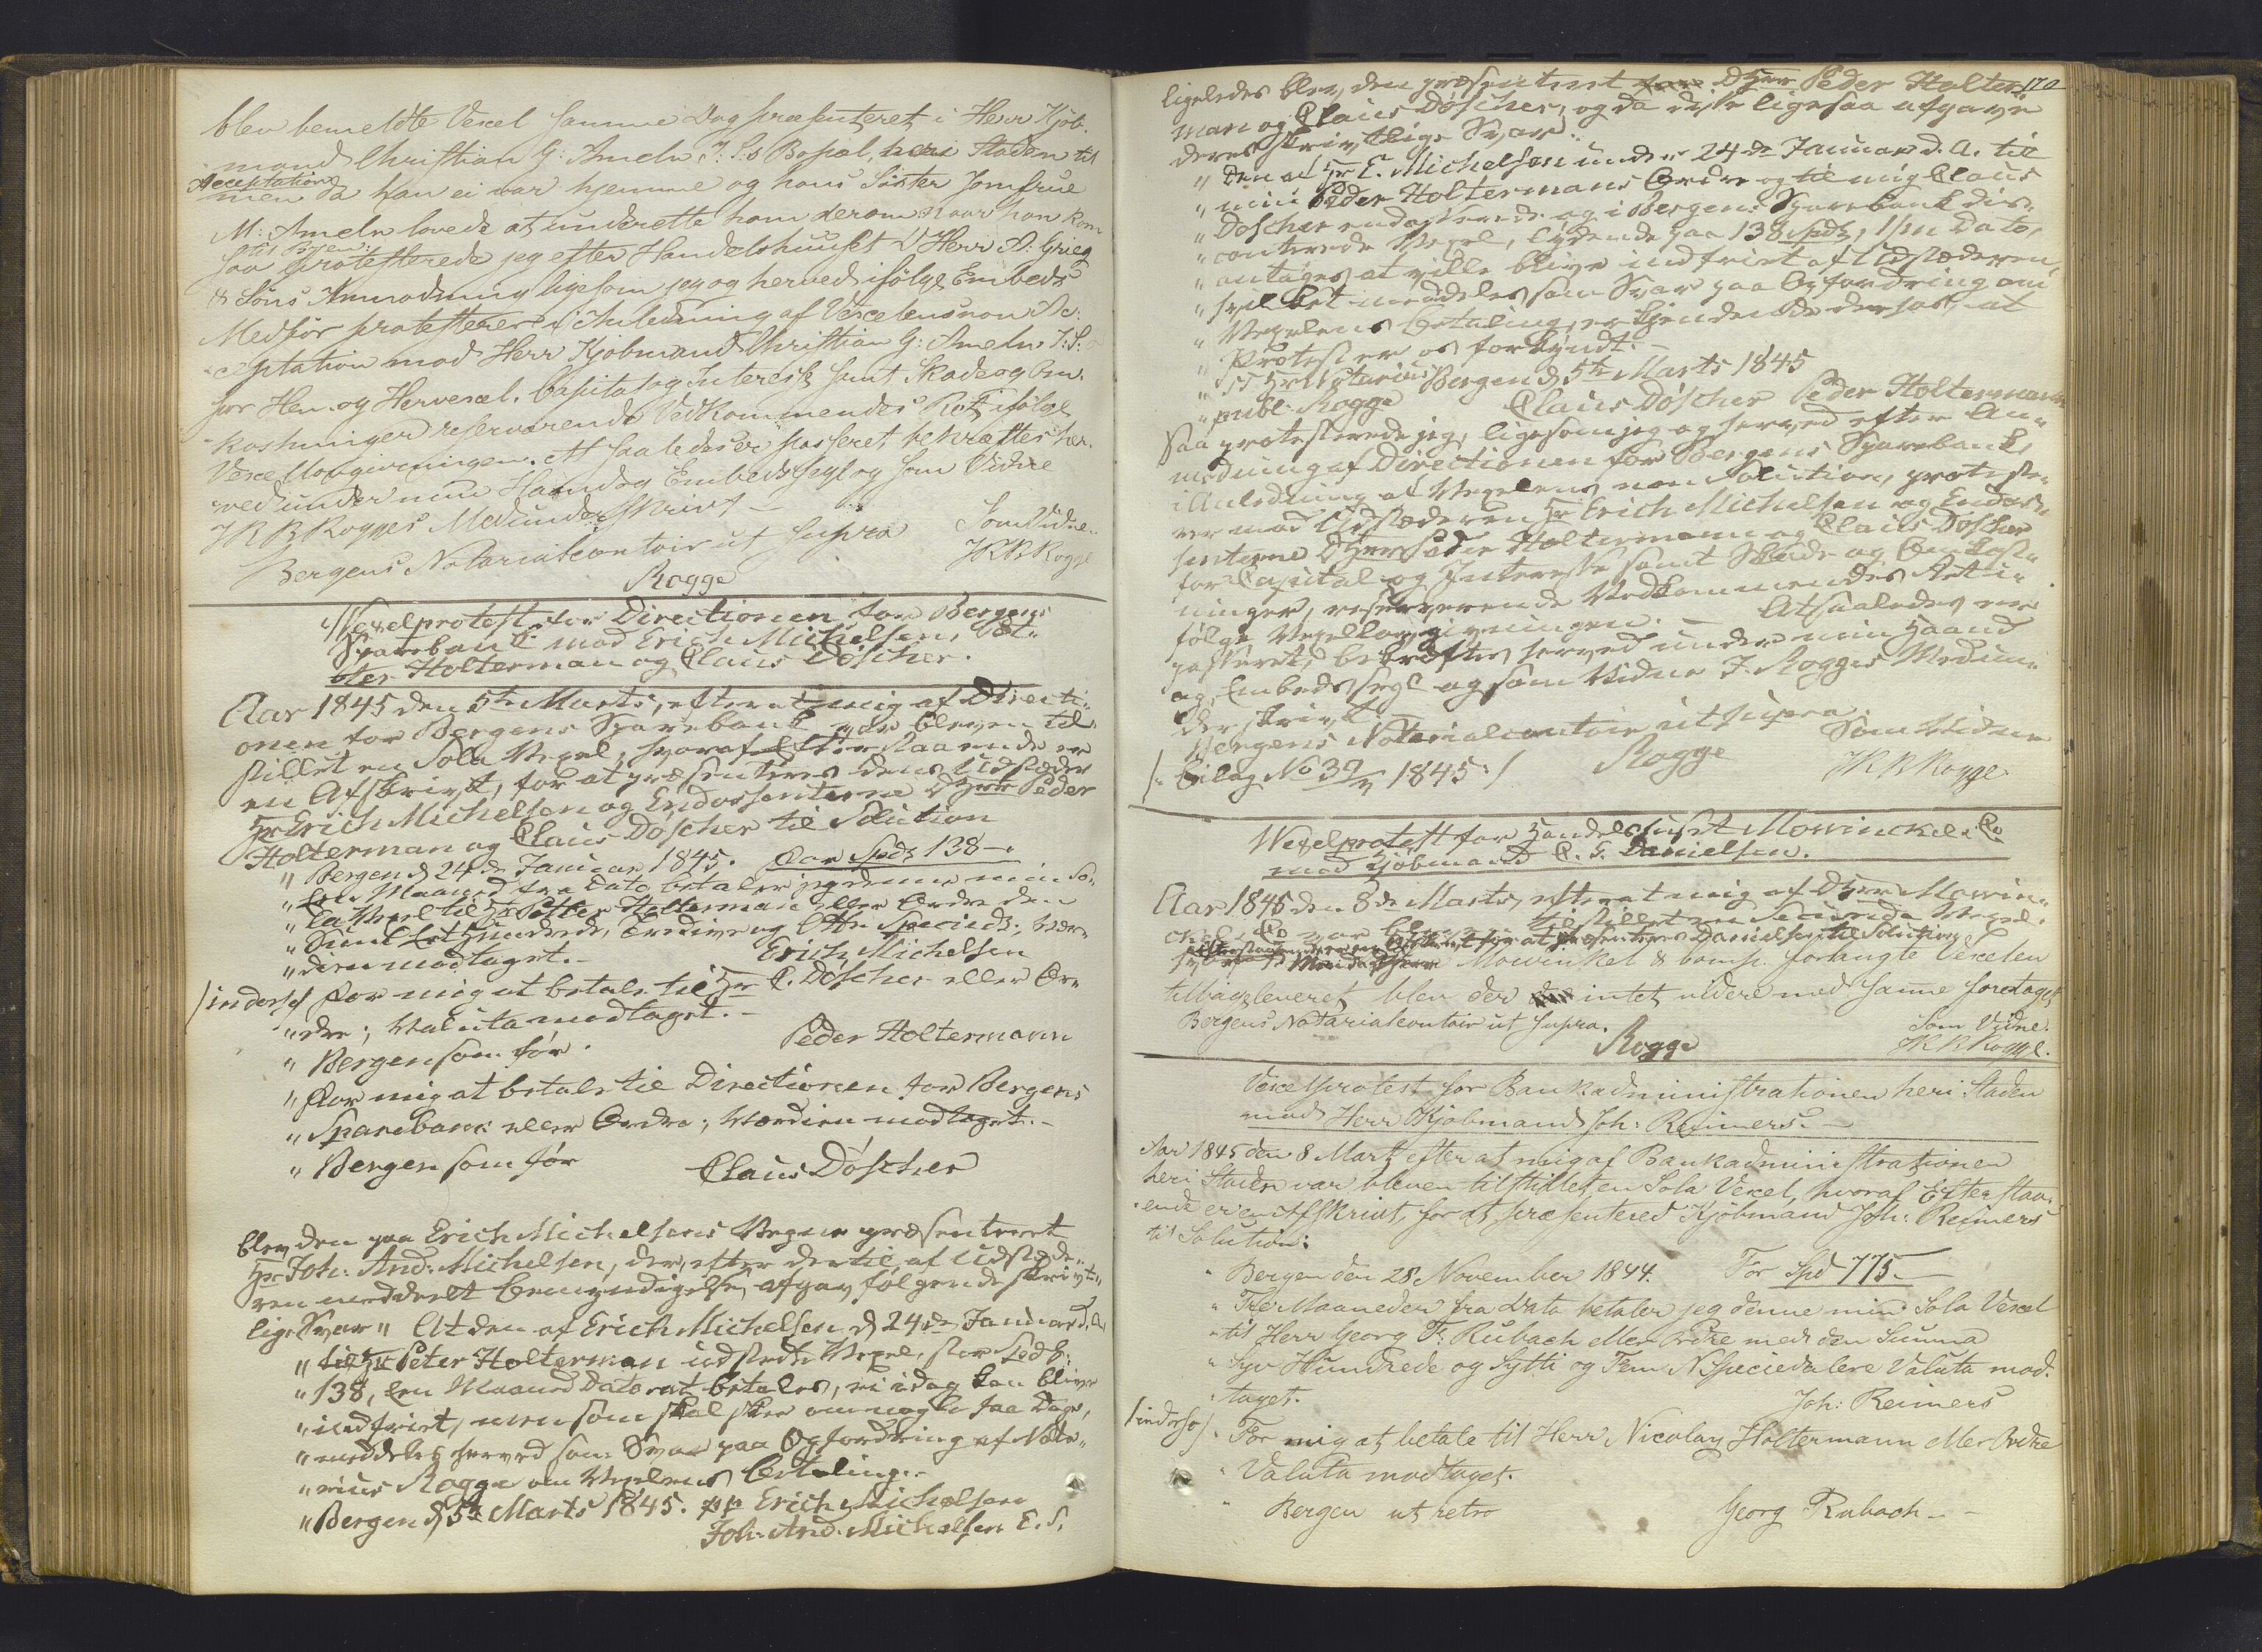 blev bemeldte Vexel samme Dag præsenteret i Herr Kjøb.
mand Christian G: Ameln J: S:s Bopæl, heri Staden til
Acceptation
men da han ei var hjemme og hans Søster Jomfrue
M: Ameln lovede at underrette ham derom naar han kom
til Byen:
saa protesterede jeg efter Handelshuuset DHerr A: Grieg
& Søns Anmodning ligesom jeg og herved ifølge Embeds
Medfør protesterer i Anledning af Vexelens non Ac¬
ceptation mod Herr Kjøbmand Christian G: Ameln J: S:
for Hen- og Hervexel, Capital og Interesse samt Skade og Om¬
kostninger reserverende Vedkommendes Ret ifølge
Vexellovgivningen. At saaledes er passeret bekræftes her¬
ved under min Haand og Embedssegl og som Vidne
J K B Rogges Medunderskrivt –
Bergens Notarialcontoir ut supra Som Vidne
Rogge JKB Rogge
Vexelprotest for Directionen for Bergens
Sparebank mod Erich Michelsen, Pet¬
ter Holterman og Claus Döscher.
Aar 1845 den 5te Marts, efterat mig af Directi¬
onen for Bergens Sparebank var bleven til¬
stillet en Sola Vexel, hvoraf Efterstaaende er
en Afskrivt, for at præsenteres dens Udstæder
Hr Erich Michelsen og Endossenterne DHrr Peder
Holterman og Claus Döscher til Solution
" Bergen d 24de Januar 1845. For Spd 138 –.
" Een Maaned fra Dato betaler jeg denne min So¬
" la Vexel til Hr Petter Holterman eller Ordre den
" Summa Eet Hundrede, Tredive og Otte Speciedr. Vær¬
" dien modtaget. – Erich Michelsen
/indorso/ For mig at betale til Hr C. Döscher eller Or¬
" dre; Valuta modtaget. –
" Bergen som før. Peder Holtermann
" For mig at betale til Directionen for Bergens
" Sparebank eller Ordre; Værdien modtaget. –
" Bergen som før Claus Döscher
blev den paa Erich Michelsens Vegne præsenteret
Hr Joh: And: Michelsen, der, efter dertil af Udstæde¬
ren meddeelt Bemyndigelse, afgav følgende skrivt¬
lige Svar " At den af Erich Michelsen d 24de Januar d. A.
" til Hr Peter Holterman udstedte Vexel, stor Spd
" 138, een Maaned Dato at betales, ei idag kan blive
" indfriet, men som skal skee om nogle faa Dage,
" meddeles herved som Svar paa Opfordring af Nota¬
" rius Rogge om Vexelens Betaling. –
" Bergen d 5te Marts 1845. pp Erich Michelsen
Joh: And: Michelsen E. S.
170
ligeledes blev den præsenteret DHrr Peder Holter¬
man og Claus Döscher, og da disse ligesaa afgave
deres skrivtlige Svar:
" Den af Hr E. Michelsen under 24de Januar d. A. til
" min Peder Holtermans Ordre og til mig Claus
" Döscher endosserede og i Bergens Sparebank dis¬
" conterede Vexel, lydende paa 138 Spd, 1/m Dato,
" antages at ville blive indfriet af Udstæderen,
" hvilket meddeles som Svar paa Opfordring om
" Vexelens Betaling, erkjendende derhos, at
" Protest er os forkyndt. –
" Bergen d 5te Marts 1845
" Hr Notarius
" publ. Rogge Claus Döscher Peder Holtermann
Saa protesterede jeg, ligesom jeg og herved efter An¬
modning af Directionen for Bergens Sparebank,
i Anledning af Vexelens non Solution, proteste¬
rer mod Udstæderen Hr Erich Michelsen og Endos¬
senterne DHrr Peder Holtermann og Claus Döscher
for Capital og Interesse samt Skade og Omkost¬
ninger, reserverende Vedkommendes Ret i¬
følge Vexellovgivningen. – At saaledes er
passeret, bekræftes herved under min Haand
og Embedssegl og som Vidne J. Rogges Medun¬
derskrivt.
Bergens Notarialcontoir ut supra.
/: Bilag No 39 1845 :/ Rogge Som Vidne
JKB Rogge
Vexelprotest for Handelshuset Mowinckel & Co
mod Kjøbmand C. F. Danielsen.
Aar 1845 den 8de Marts, efterat mig af DHrr Mowin¬
ckel & Co var bleven tilstillet en Secunda Vexel.
hvoraf Efterstaaende er en Afskrivt for at præsenteres Danielsen til Solution,
Mowinkel & Comp. forlangte Vexelen
tilbageleveret blev der intet videre med samme foretaget
Bergens Notarialcontoir ut supra. Som Vidne.
Rogge JKB Rogge.
Vexelprotest for Bankadministrationen heri Staden
mod Herr Kjøbmand Joh: Reimers. –
Aar 1845 den 8 Marts efter at mig af Bankadministrationen
heri Staden var bleven tilstillet en Sola Vexel, hvoraf Efterstaa¬
ende er en Afskrivt, for at præsenteres Kjøbmand Joh: Reimers
til Solution:
" Bergen den 28 November 1844. For Spd 775. –
" Tre Maaneder fra Dato betaler jeg denne min Sola Vexel
" til Herr Georg F: Rubach eller Ordre med den Summa
" Syv Hundrede og Sytti og Fem N Speciedalere Valuta mod¬
" taget. Joh: Reimers
/indorso/ " For mig at betale til Herr Nicolay Holtermann eller Ordre
" Valuta modtaget.
" Bergen ut retro Georg Rubach – –